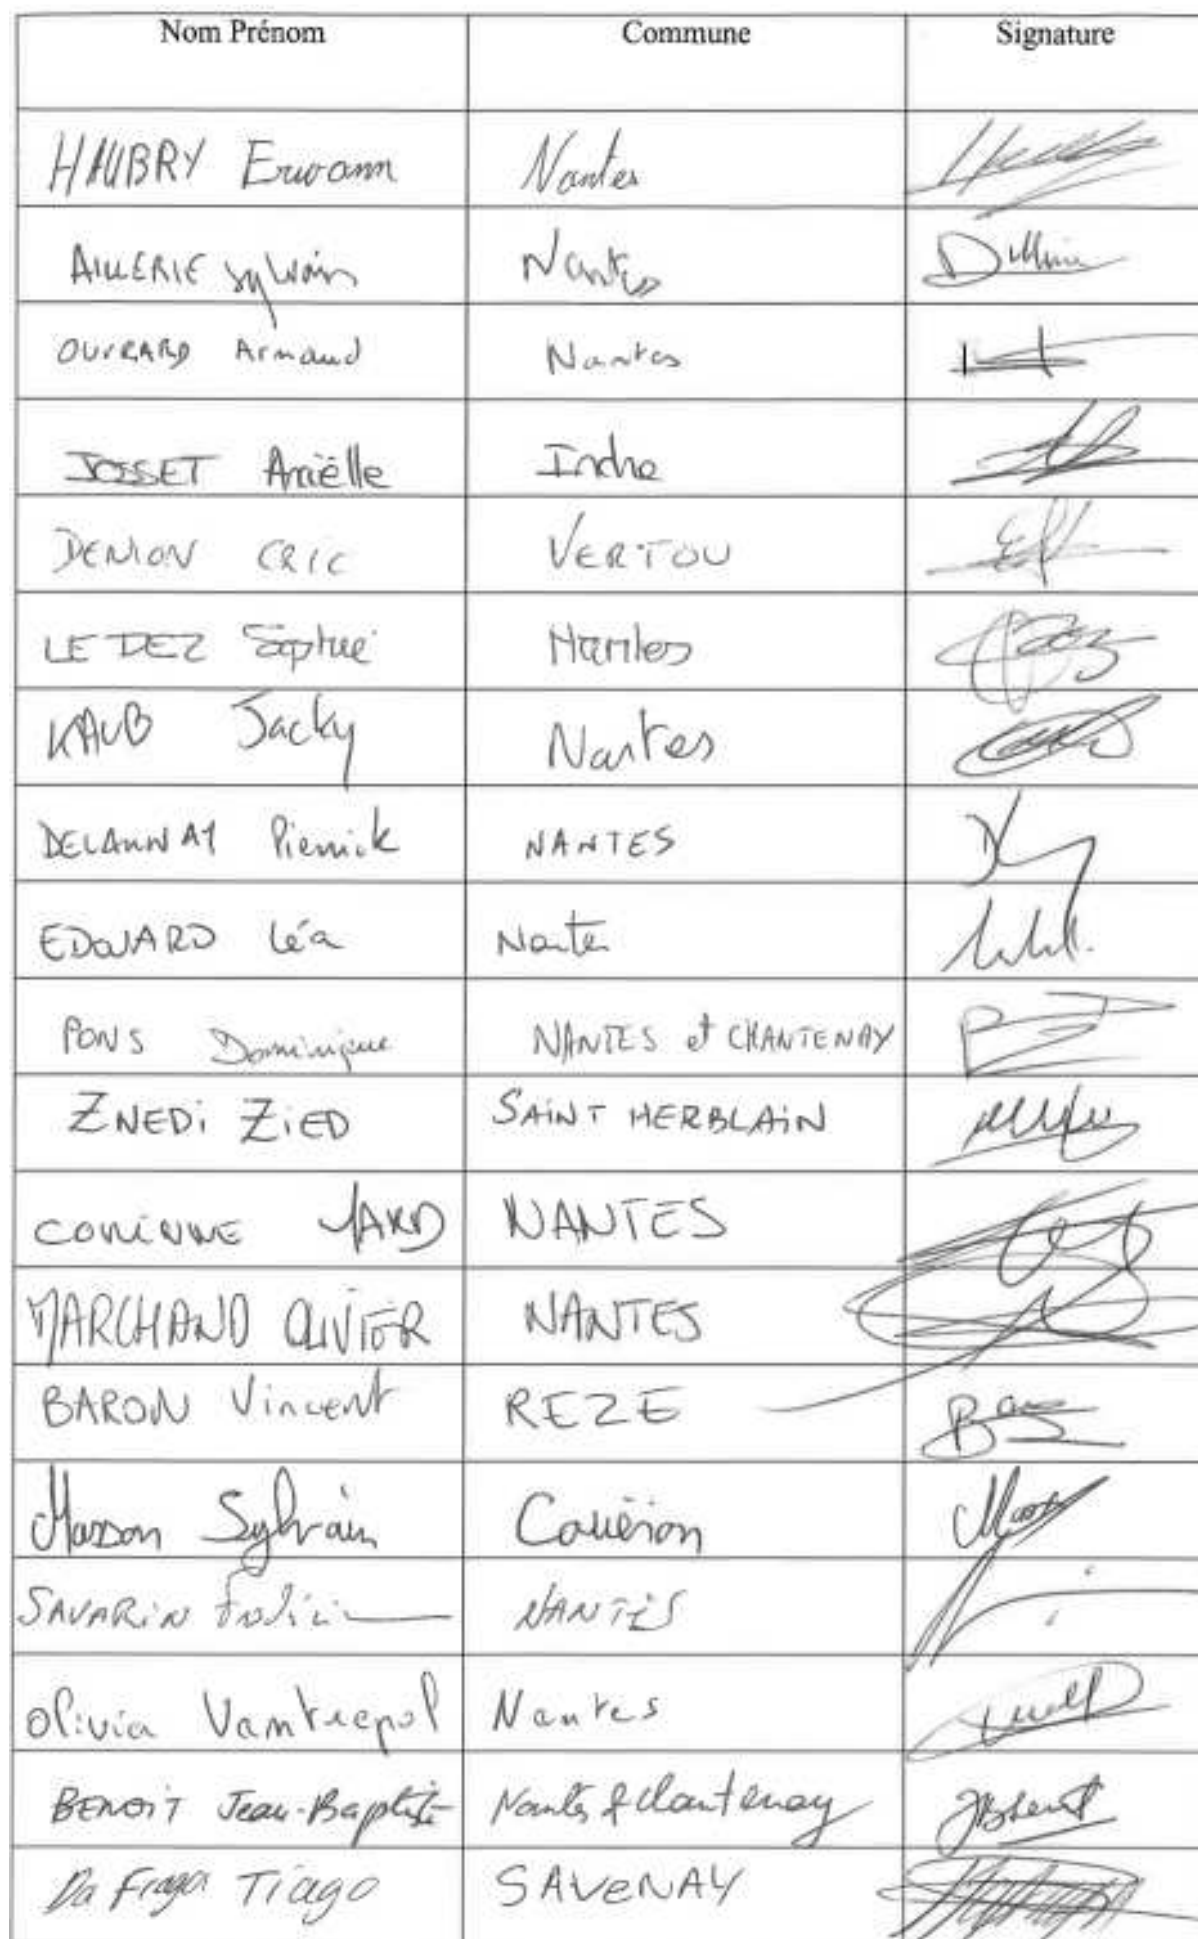 Nom Prénom Commune Signature
HAUBRY Erwann Nantes
AILLERIE Sylvain Nantes
OUVRARD Armand Nantes
JOSSET Anaëlle Indre
DENION ERIC VERTOU
LE DEZ Sophie Nantes
KAUB Jacky Nantes
DELAUNAY Pierrick NANTES
EDOUARD Léa Nantes
PONS Dominique NANTES et CHANTENAY
ZNEDi ZiED SAiNT HERBLAiN
CORINNE JARD NANTES
MARCHAND OLIVIER NANTES
BARON Vincent REZE
Masson Sylvain Couëron
SAVARiN NANTES
Olivia Vantrepol Nantes
BENOIT Jean-Baptiste Nantes & Chantenay
Da Fraga Tiago SAVENAY